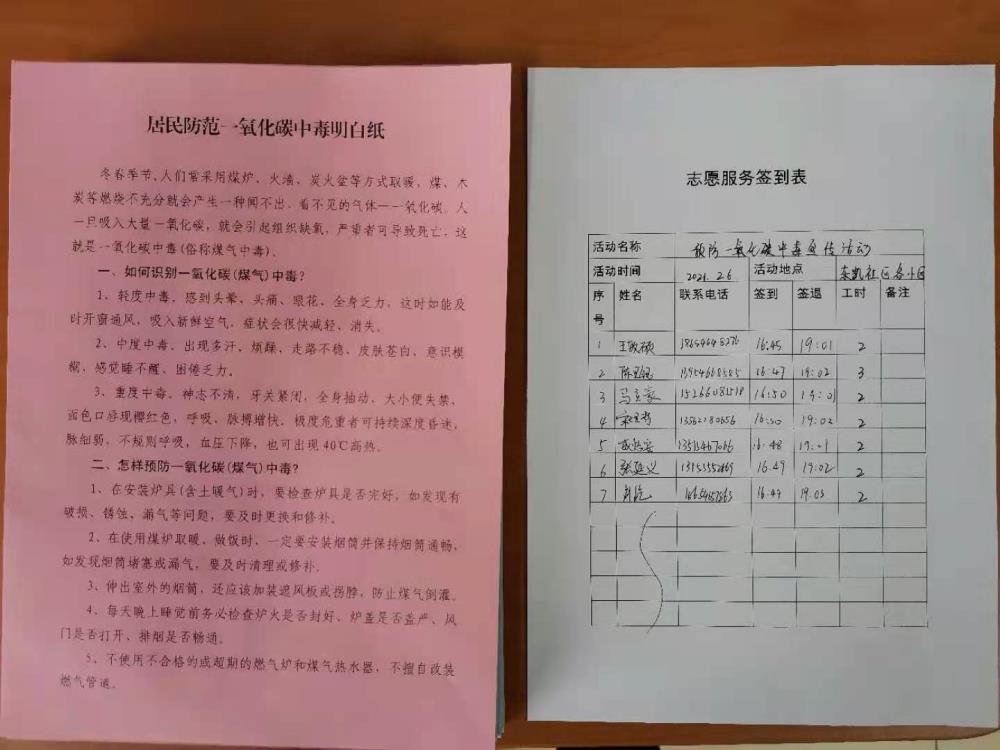 居民防范一氧化碳中毒明白纸
冬春季节,人们常采用煤炉、火墙、炭火盆等方式取暖,煤、木
炭等燃烧不充分就会产生一种闻不出、看不见的气体——一氧化碳。人
一旦吸入大量一氧化碳,就会引起组织缺氧,严重者可导致死亡,这
就是一氧化碳中毒(俗称煤气中毒)。
一、如何识别一氧化碳(煤气)中毒?
1、轻度中毒。感到头晕、头痛、眼花、全身乏力,这时如能及
时开窗通风,吸入新鲜空气,症状会很快减轻、消失。
2、中度中毒。出现多汗、烦躁、走路不稳、皮肤苍白、意识模
糊,感觉睡不醒、困倦乏力。
3、重度中毒。神志不清,牙关紧闭,全身抽动,大小便失禁,
面色口唇现樱红色,呼吸、脉搏增快。极度危重者可持续深度昏迷,
脉细弱,不规则呼吸,血压下降,也可出现40℃高热。
二、怎样预防一氧化碳(煤气)中毒?
1、在安装炉具(含土暖气)时,要检查炉具是否完好,如发现有
破损、锈蚀、漏气等问题,要及时更换和修补。
2、在使用煤炉取暖、做饭时,一定要安装烟筒并保持烟筒通畅,
如发现烟筒堵塞或漏气,要及时清理或修补。
3、伸出室外的烟筒,还应该加装遮风板或拐脖,防止煤气倒灌。
4、每天晚上睡觉前务必检查炉火是否封好、炉盖是否盖严、风
门是否打开、排烟是否畅通。
5、不使用不合格的或超期的燃气炉和煤气热水器,不擅自改装
燃气管道。
志愿服务签到表
活动名称 预防一氧化碳中毒宣传活动
活动时间 2021.2.6 活动地点 社区各小区
序号 姓名 联系电话 签到 签退 工时 备注
1 16:45 19:01 2
2 16:47 19:02 3
3 马立豪 16:50 19:01 2
4 16:50 19:02 2
5 16:48 19:01 2
6 张延义 16:49 19:02 2
7 16:49 19:03 2